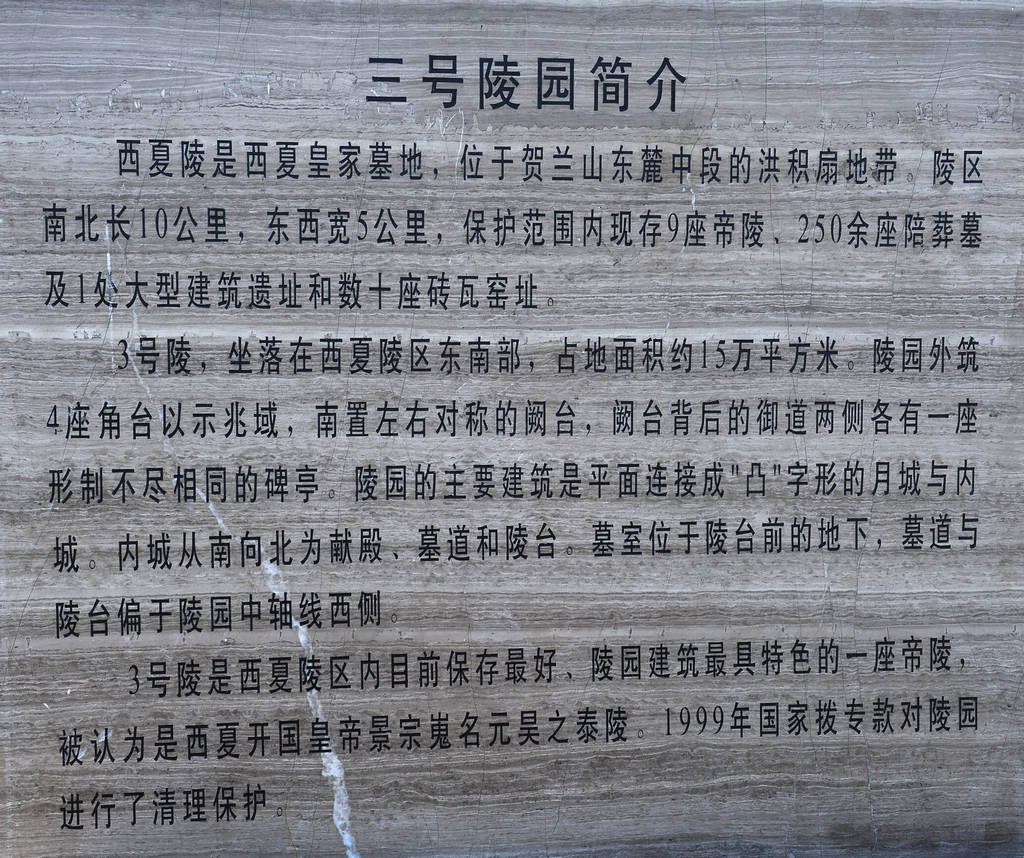 三号陵园简介
西夏陵是西夏皇家墓地，位于贺兰山东麓中段的洪积扇地带。陵区
南北长10公里，东西宽5公里，保护范围内现存9座帝陵、250余座陪葬墓
及1处大型建筑遗址和数十座砖瓦窑址。
3号陵，坐落在西夏陵区东南部，占地面积约15万平方米。陵园外筑
4座角台以示兆域，南置左右对称的阙台，阙台背后的御道两侧各有一座
形制不尽相同的碑亭。陵园的主要建筑是平面连接成"凸"字形的月城与内
城。内城从南向北为献殿、墓道和陵台。墓室位于陵台前的地下，墓道与
陵台偏于陵园中轴线西侧。
3号陵是西夏陵区内目前保存最好、陵园建筑最具特色的一座帝陵，
被认为是西夏开国皇帝景宗嵬名元昊之泰陵。1999年国家拨专款对陵园
进行了清理保护。